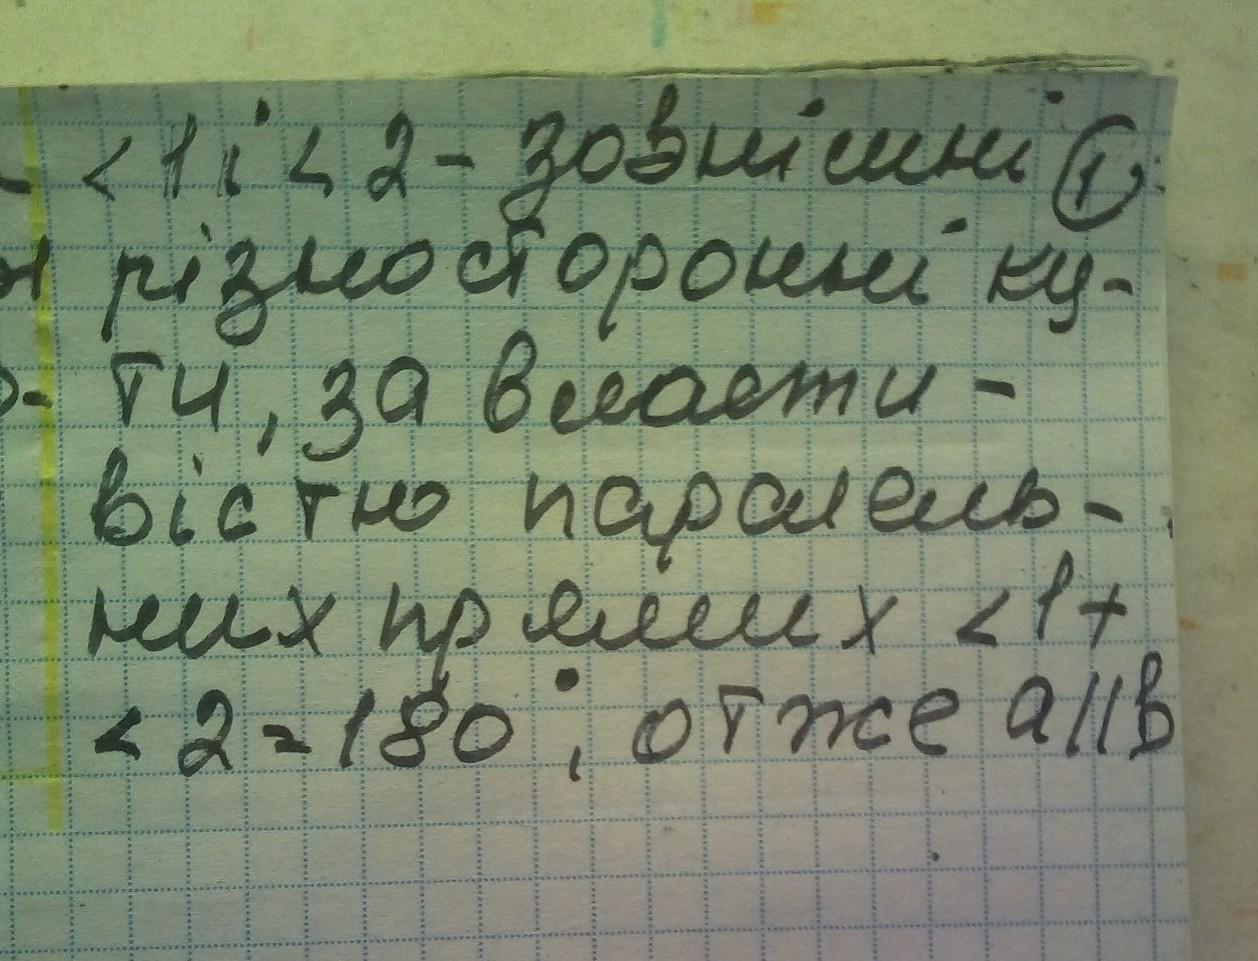 <1 і <2 - зовнішні 1
різносторонні ку-
ти, за власти-
вістю паралель-
них прямих <1+
<2=180°; отже а||в